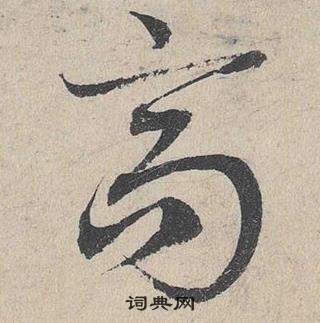 高
词典网